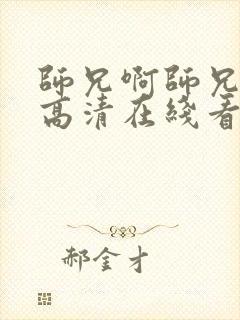 師兄啊師兄
高清在綫看
郝金才